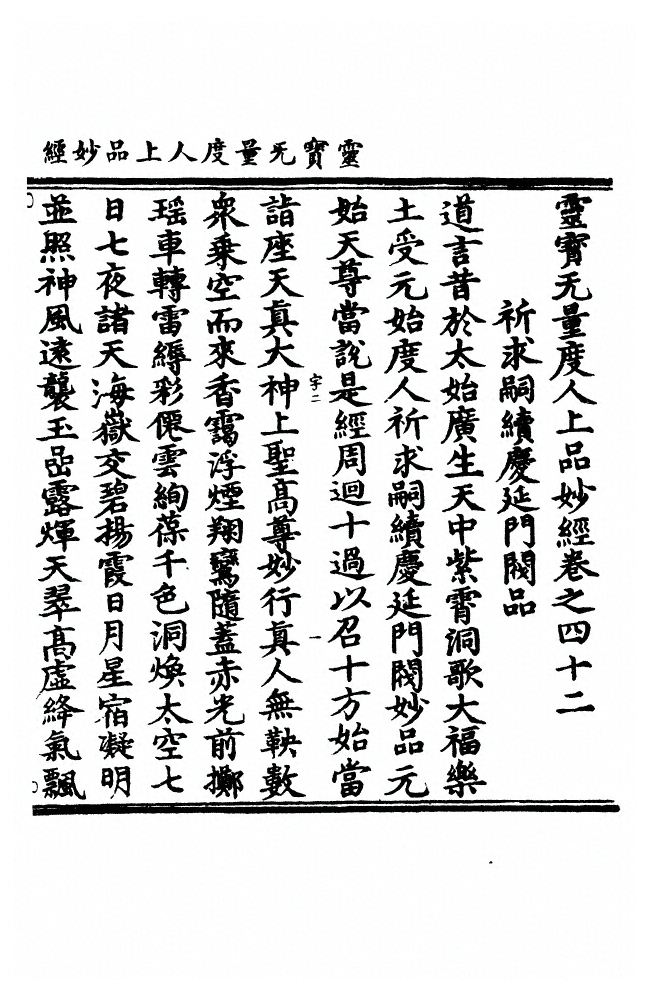 靈寶无量度人上品妙經
靈寶无量度人上品妙經卷之四十二
祈求嗣續慶延門閥品
道言昔於太始廣生天中紫霄洞歌大福樂
土受元始度人祈求嗣續慶延門閥妙品元
始天尊當說是經周迴十過以召十方始當
字二
一
詣座天真大神上聖高尊妙行真人無鞅數
衆乗空而來香靄浮煙翔鸞隨蓋赤光前擲
瑶車轉雷縟彩僊雲絢葆千色洞煥太空七
日七夜諸天海嶽交碧揚霞日月星宿凝明
並照神風遠襲玉嵒露煇天翠高虛絳氣飄